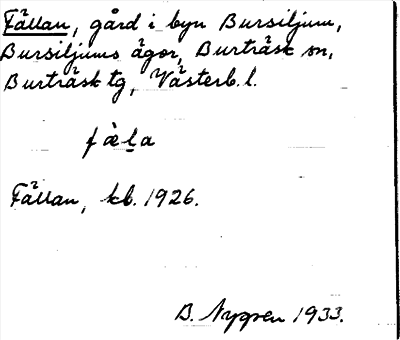 Fällan, gård i byn Bursiljum,
Bursiljums ägor, Burträsk sn,
Burträsk tg, Västerb. l.
fὲḷa
Fällan, kb. 1926.
B. Nygren 1933.